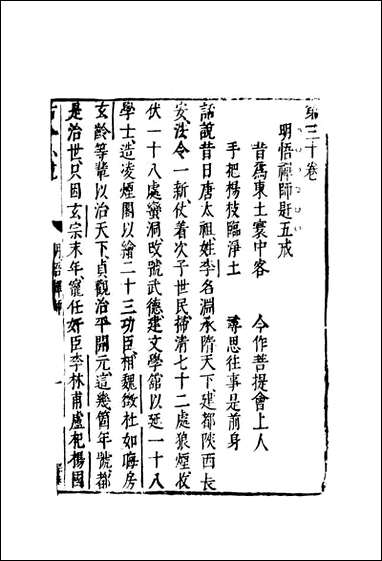 第三十卷
明悟禪師趕五戒
昔爲東土寰中客　今作菩提會上人
手把楊枝臨淨土　尋思往事是前身
話說昔日唐太祖姓李名淵承隋天下建都陝西長
安法令一新仗着次子世民掃清七十二處狼煙收
伏一十八處蠻洞改號武德建文學舘以延一十八
學士造凌煙閣以繪二十三功臣相魏徵杜如晦房
玄齡等輩以治天下貞觀治平開元這幾箇年號都
是治世只因玄宗末年寵任奸臣李林甫盧杞楊國
明悟禪師